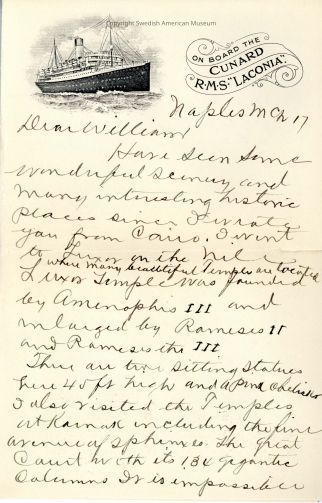 Copyright Swedish American Museum
ON BOARD THE
CUNARD
R·M·S·"LACONIA".
Naples Mch 17
Dear William
Have seen some
wonderful scenery and
many interesting historic
places since I wrote
you from Cairo. I went
to Luxor on the Nile
where many beautiful Temples are located
Luxor Temple was founded
by Amenophis III and
enlarged by Rameses II
and Rameses the III
There are two sitting statues
here 45 ft high and a Pink Obelisk
I also visited the Temples
at Karnak including the fine
avenue of Sphinxes. The great
Court with its 134 gigantic
Columns It is impossible